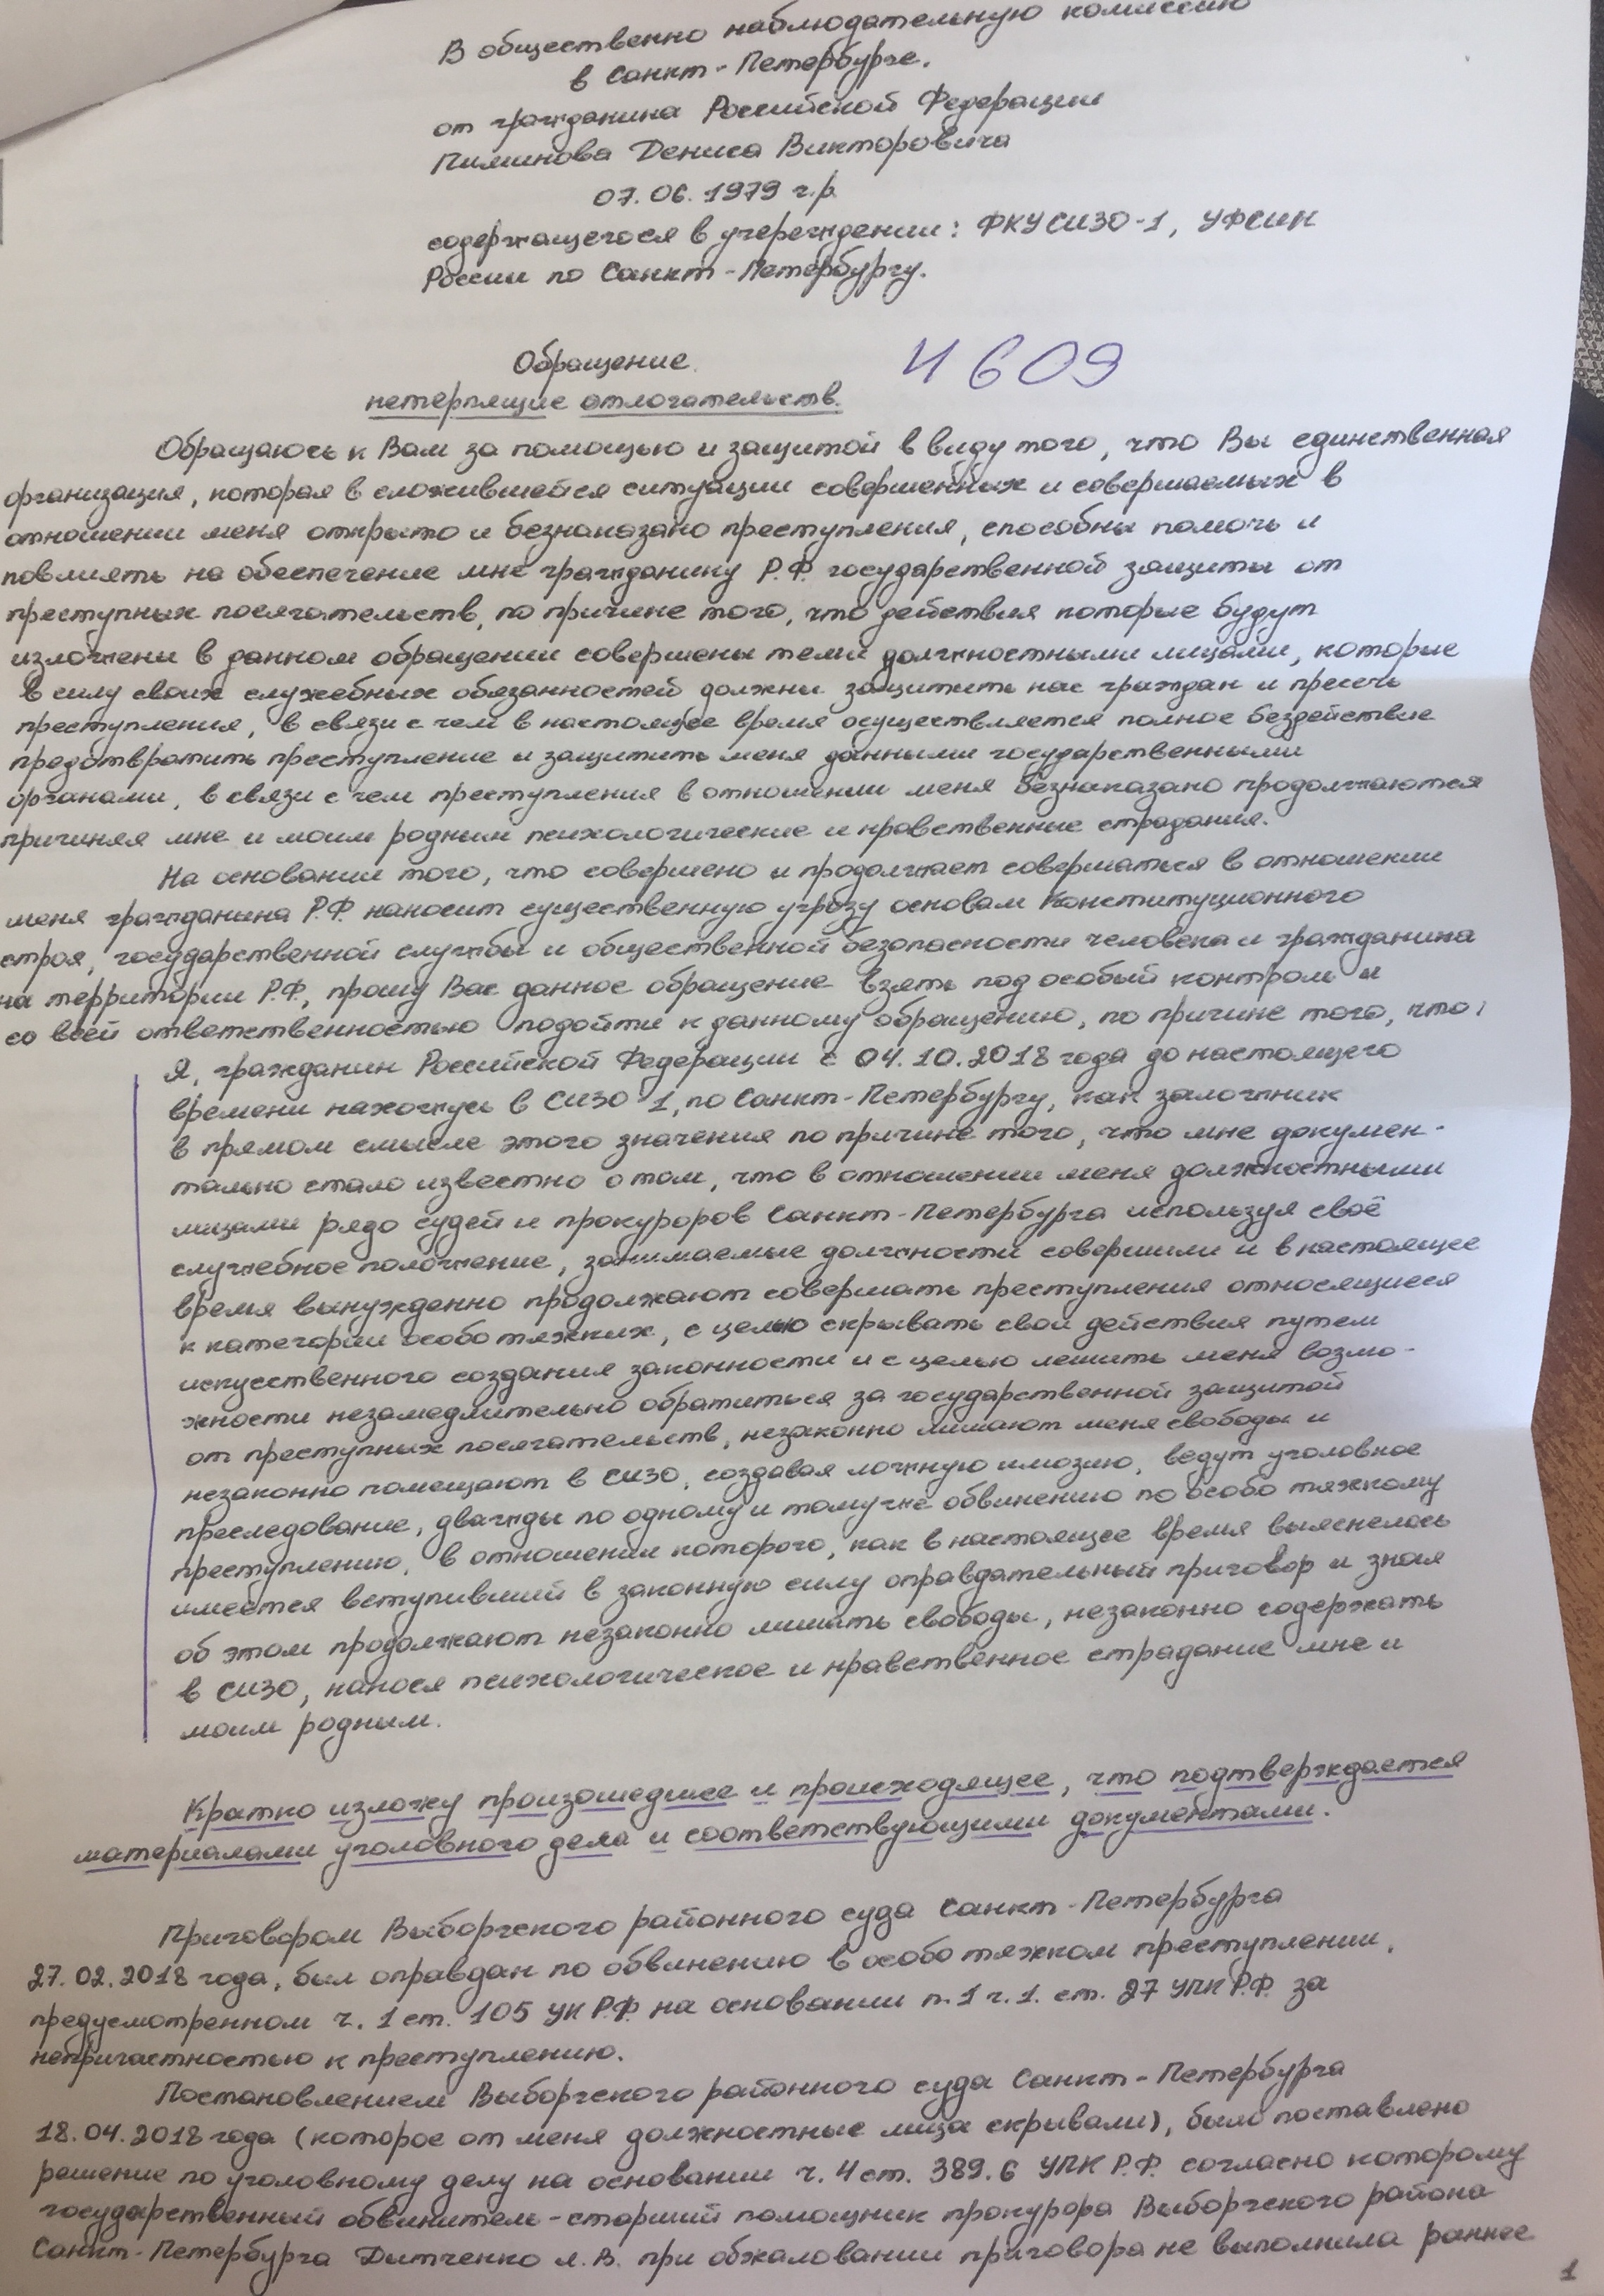 В общественно наблюдательную комиссию
в Санкт-Петербурге.
от гражданина Российской Федерации
Пиминова Дениса Викторовича
07.06.1979 г.р.
содержащегося в учереждении: ФКУ СИЗО-1, УФСИН
России по Санкт-Петербургу.
Обращение
4609
нетерпящие отлогательств.
Обращаюсь к Вам за помощью и защитой в виду того, что Вы единственная
организация, которая в сложившейся ситуации совершенных и совершаемых в
отношении меня открыто и безнаказано преступления, способны помочь и
повлиять на обеспечение мне гражданину Р.Ф. государственной защиты от
преступных посягательств, по причине того, что действия которые будут
изложены в данном обращении совершены теми должностными лицами, которые
в силу своих служебных обязанностей должны защитить нас граждан и пресечь
преступления, в связи с чем в настоящее время осуществляется полное бездействие
предотвратить преступление и защитить меня данными государственными
органами, в связи с чем преступления в отношении меня безнаказано продолжаются
причиняя мне и моим родным психологические и нравственные страдания.
На основании того, что совершено и продолжает совершаться в отношении
меня гражданина Р.Ф. наносит существенную угрозу основам Конституционного
строя, государственной службы и общественной безопасности человека и гражданина
на территории Р.Ф., прошу Вас данное обращение взять под особый контроль и
со всей ответственностью подойти к данному обращению, по причине того, что:
Я, гражданин Российской Федерации с 04.10.2018 года до настоящего
времени нахожусь в СИЗО 1, по Санкт-Петербургу, как заложник
в прямом смысле этого значения по причине того, что мне докумен-
тально стало известно о том, что в отношении меня должностными
лицами рядо судей и прокуроров Санкт-Петербурга используя своё
служебное положение, занимаемые должности совершили и в настоящее
время вынужденно продолжают совершать преступления относящиеся
к категории особо тяжких, с целью скрывать свои действия путем
искусственного создания законности и с целью лешить меня возмо-
жности незамедлительно обратиться за государственной защитой
от преступных посягательств, незаконно лишают меня свободы и
незаконно помещают в СИЗО, создавая ложную илюзию, ведут уголовное
преследование, дважды по одному и тому же обвинению по особо тяжкому
преступлению, в отношении которого, как в настоящее время выяснелось
имеется вступивший в законную силу оправдательный приговор и зная
об этом продолжают незаконно лишать свободы, незаконно содержать
в СИЗО, нанося психологическое и нравственное страдание мне и
моим родным.
Кратко изложу произошедшее и происходящее, что подтверждается
материалами уголовного дела и соответствующими документами.
Приговором Выборгского районного суда Санкт-Петербурга
27.02.2018 года, был оправдан по обвинению в особо тяжком преступлении,
предусмотренном ч. 1 ст. 105 УК Р.Ф. на основании п.1 ч.1. ст. 27 УПК Р.Ф. за
непричастностью к преступлению.
Постановлением Выборгского районного суда Санкт-Петербурга
18.04.2018 года (которое от меня должностные лица скрывали), было поставлено
решение по уголовному делу на основании ч. 4 ст. 389.6 УПК Р.Ф. согласно которому
государственный обвинитель-старший помощник прокурора Выборгского района
Санкт-Петербурга Дытченко Л.В. при обжаловании приговора не выполнила раннее
1